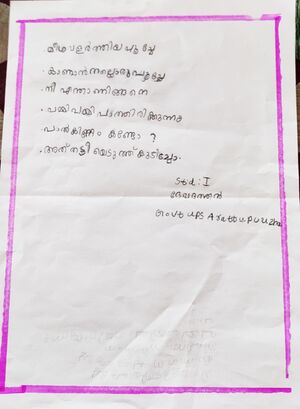 മീശവളർത്തിയ പൂച്ചേ
. കാണാൻ നല്ലൊരു പൂച്ചേ
. നീ എന്താണിങ്ങനെ
. പമ്മിപമ്മി പാത്തിരിക്കുന്നു
. പാൽകിണ്ണം കണ്ടോ ?
. അത് തട്ടിയെടുത്ത് കുടിച്ചോ.
Std : I
ദേവദത്തൻ
Govt UPS Arattupuzha